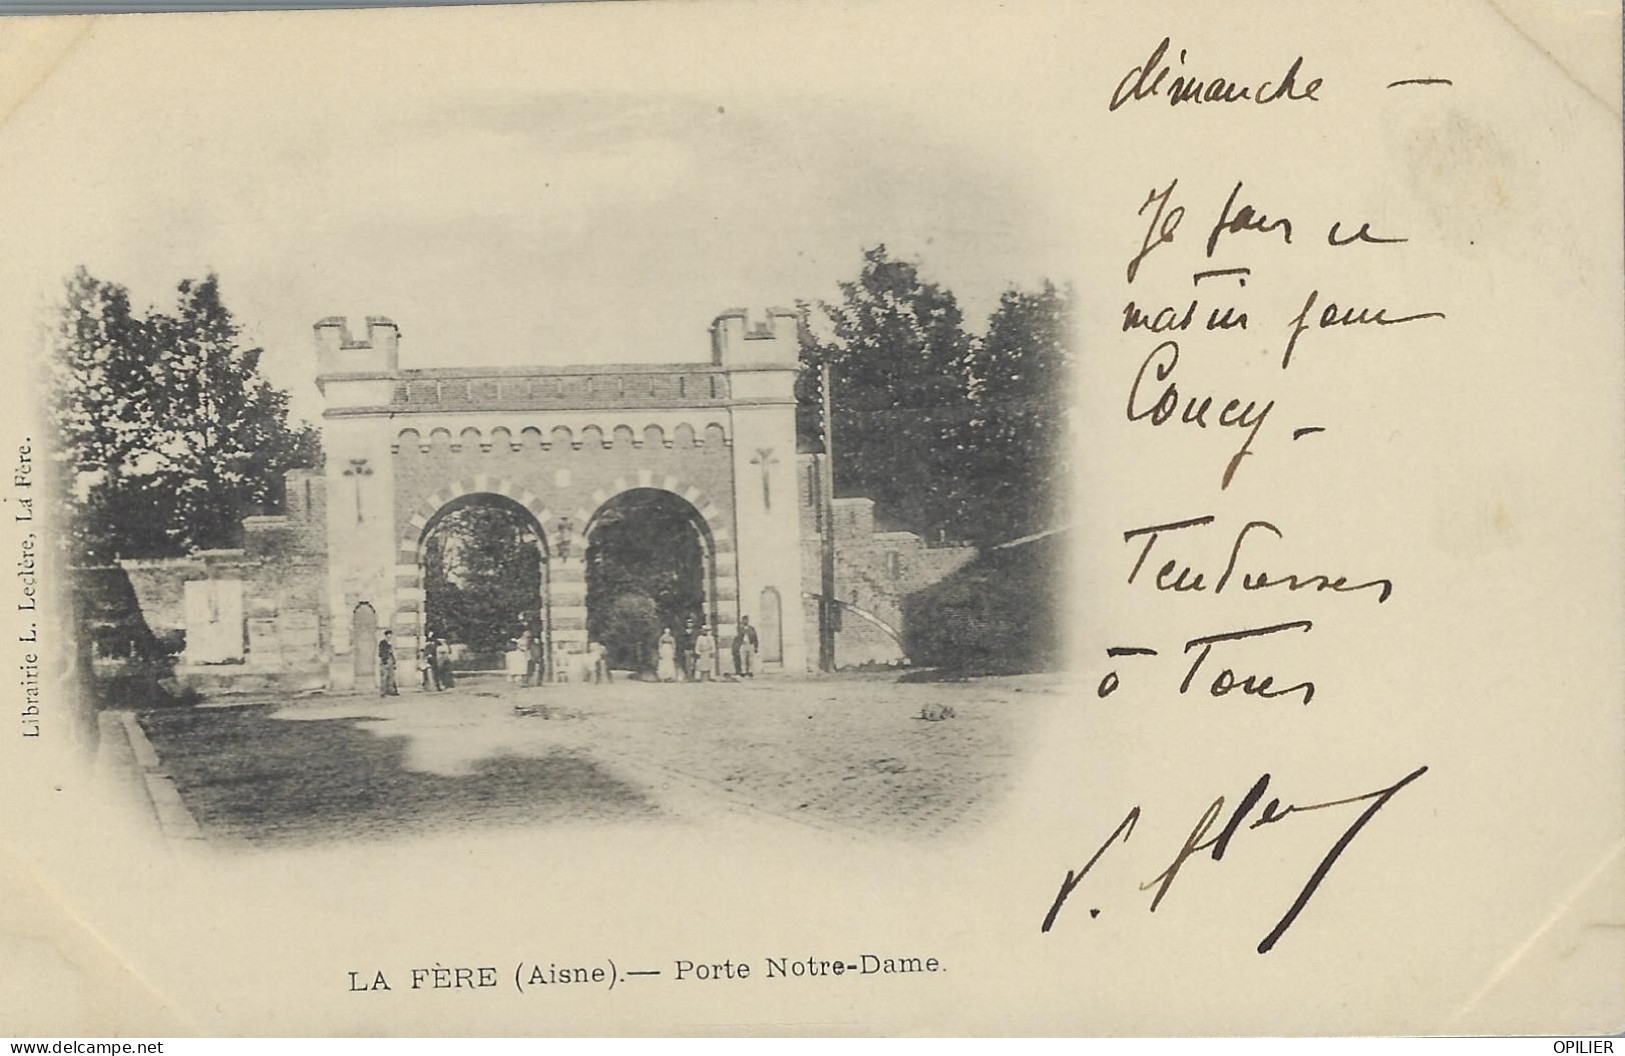 dimanche —
Je pars ce
matin pour
Coucy –
Tendresses
à Tous
Librairie L. Leclère, La Fère.
LA FÈRE (Aisne).— Porte Notre-Dame.
delcampe.net
OPILIER